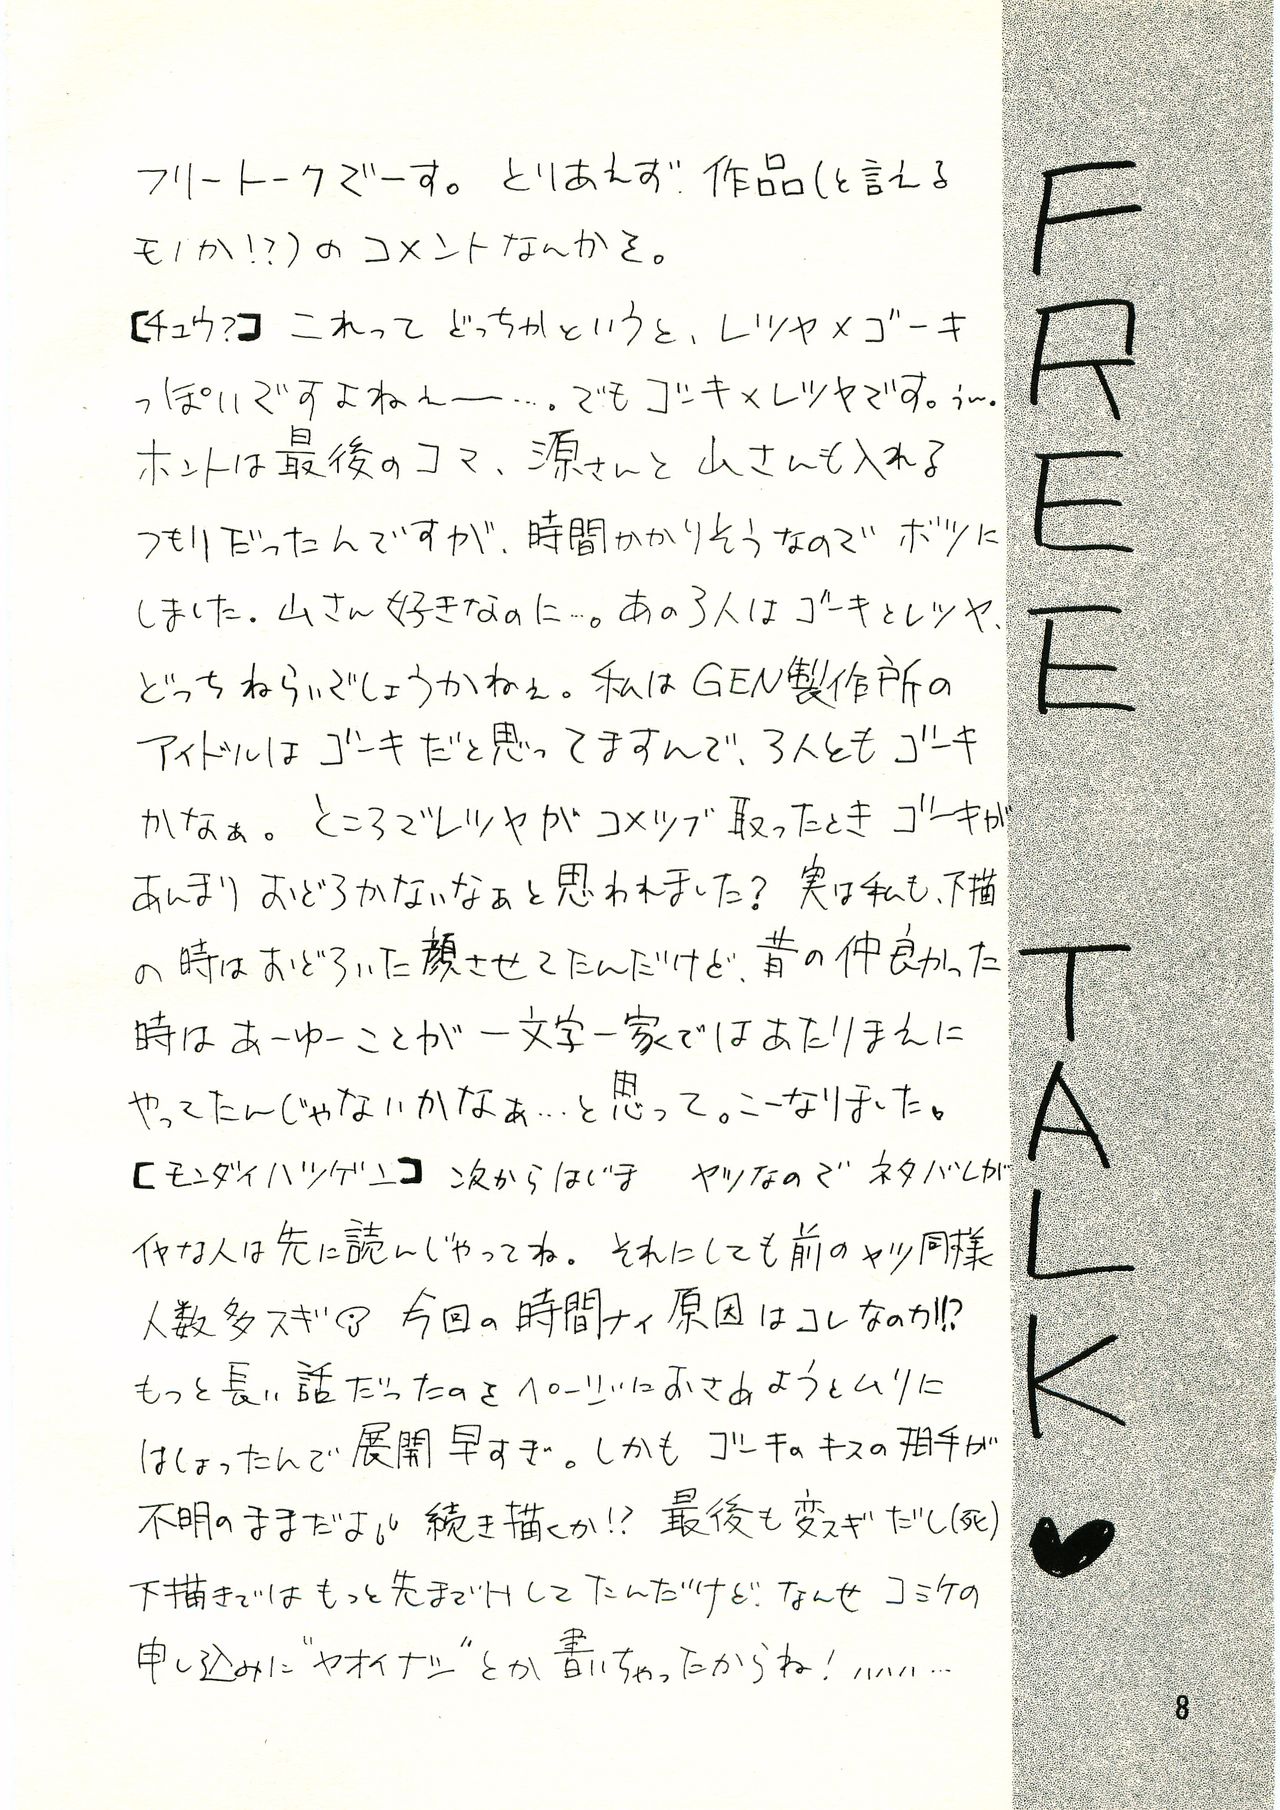 フリートークでーす。とりあえず、作品(と言える
モノか!?)のコメントなんかを。
【チュウ?】これってどっちかというと、レツヤ×ゴーキ
っぽいですよねぇー…。でもゴーキ×レツヤです。うー。
ホントは最後のコマ、源さんと山さんも入れる
つもりだったんですが、時間かかりそうなのでボツに
しました。山さん好きなのに…。あの3人はゴーキとレツヤ、
どっちねらいでしょうかねぇ。私はGEN製作所の
アイドルはゴーキだと思ってますんで、3人ともゴーキ
かなぁ。ところでレツヤがコメツブ取ったときゴーキが
あんまりおどろかないなぁと思われました?実は私も、下描
の時はおどろいた顔させてたんだけど、昔の仲良かった
時はあーゆーことが一文字一家ではあたりまえに
やってたんじゃないかなぁ…と思って。こーなりました。
【モンダイハツゲン】次からはじま ヤツなのでネタバレが
イヤな人は先に読んじゃってね。それにしても前のヤツ同様
人数多スギ 今回の時間ナイ原因はコレなのか!!?
もっと長い話だったのをページにおさめようとムリに
はしょったんで展開早すぎ。しかもゴーキのキスの相手が
不明のままだよ 続き描くか!?最後も変スギだし(死)
下描きではもっと先までHしてたんだけど、なんせコミケの
申し込みに"ヤオイナシ"とか書いちゃったからね!ハハハ…
FREE TALK ♥
8